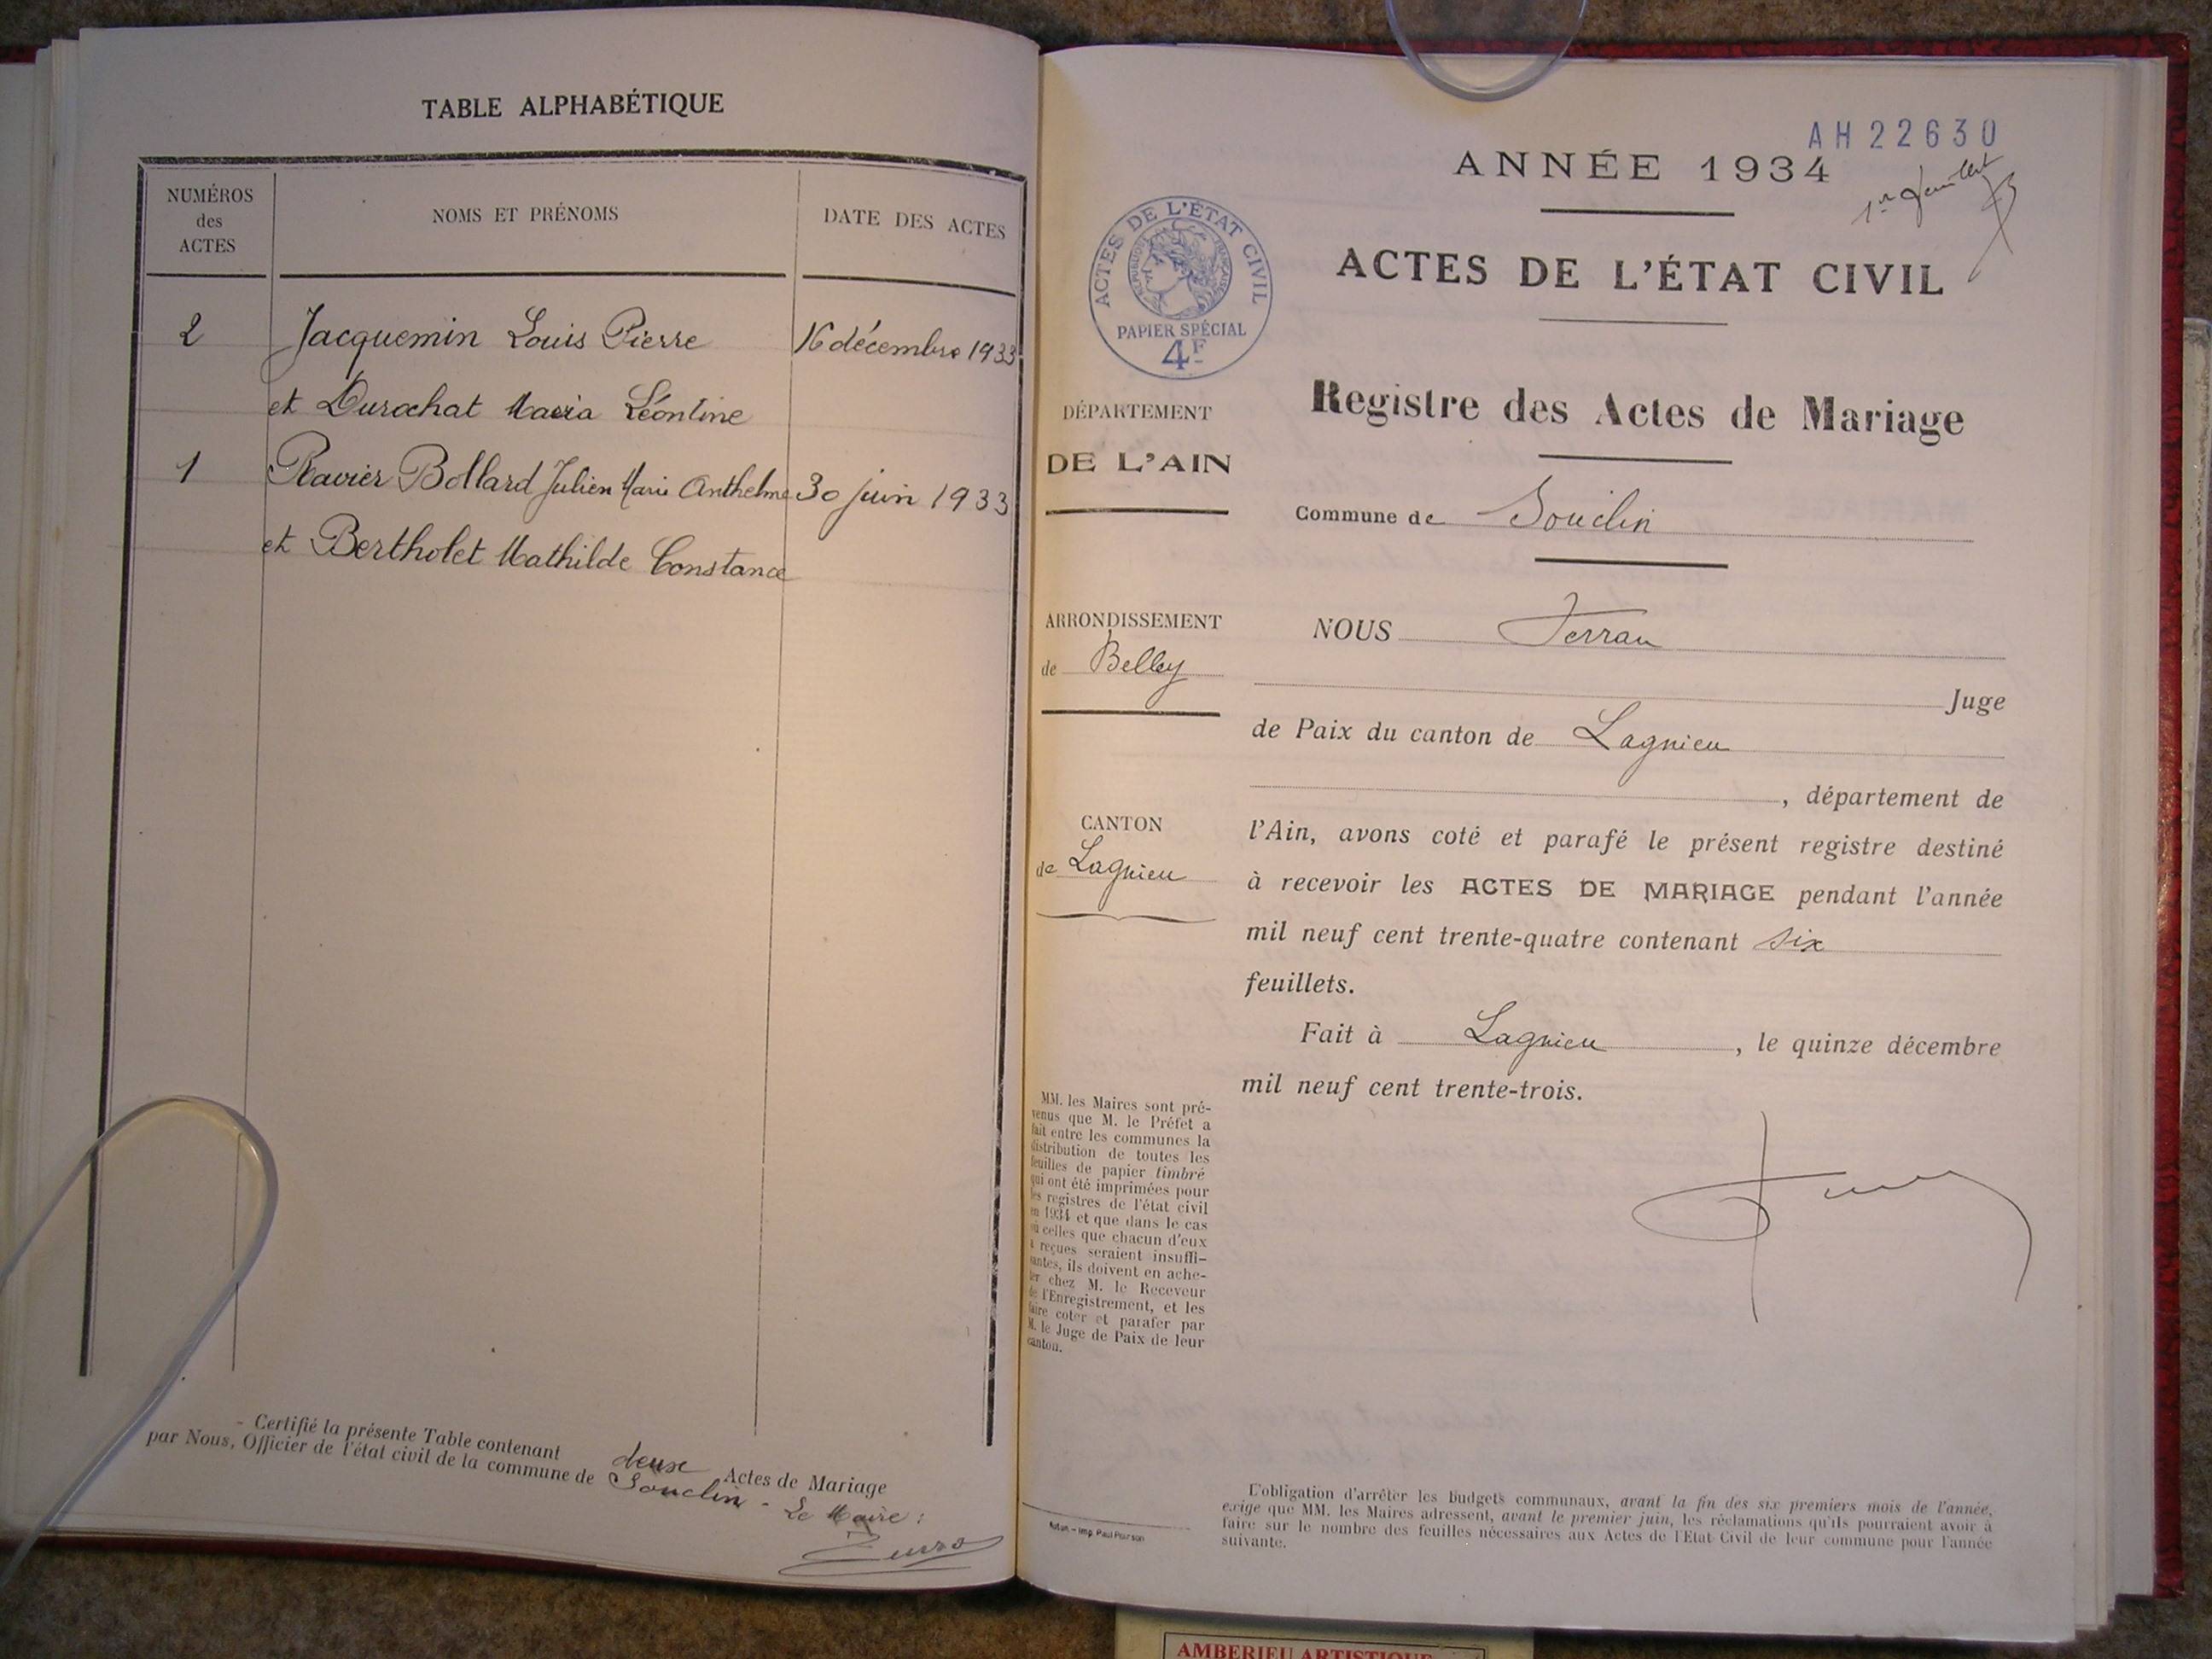 TABLE ALPHABÉTIQUE
NUMÉROS
des
ACTES
NOMS ET PRÉNOMS
DATE DES ACTES
2 Jacquemin Louis Pierre 16 décembre 1933
et Durochat Maria Léontine
1 Ravier Bollard Julien Marie Anthelme 30 juin 1933
et Bertholet Mathilde Constance
Certifié la présente Table contenant deux Actes de Mariage
par Nous, Officier de l'état civil de la commune de Souclin - Le Maire :
AH22630
ANNÉE 1934
1er feuillet
ACTES DE L'ÉTAT CIVIL
ACTES DE L'ÉTAT CIVIL
RÉPUBLIQUE FRANÇAISE
PAPIER SPÉCIAL
4F
DÉPARTEMENT
DE L'AIN
Registre des Actes de Mariage
Commune de Souclin
ARRONDISSEMENT
de Belley
CANTON
de Lagnieu
NOUS Ferrau
Juge
de Paix du canton de Lagnieu
, département de
l'Ain, avons coté et parafé le présent registre destiné
à recevoir les ACTES DE MARIAGE pendant l'année
mil neuf cent trente-quatre contenant six
feuillets.
Fait à Lagnieu, le quinze décembre
mil neuf cent trente-trois.
MM. les Maires sont pré-
venus que M. le Préfet a
fait entre les communes la
distribution de toutes les
feuilles de papier timbré
qui ont été imprimées pour
les registres de l'état civil
en 1934 et que dans le cas
où celles que chacun d'eux
a reçues seraient insuffi-
santes, ils doivent en ache-
ter chez M. le Receveur
de l'Enregistrement, et les
faire coter et parafer par
M. le Juge de Paix de leur
canton.
Autun - Imp. Paul Poirson
L'obligation d'arrêter les budgets communaux, avant la fin des six premiers mois de l'année,
exige que MM. les Maires adressent, avant le premier juin, les réclamations qu'ils pourraient avoir à
faire sur le nombre des feuilles nécessaires aux Actes de l'Etat-Civil de leur commune pour l'année
suivante.
AMBERIEU ARTISTIQUE